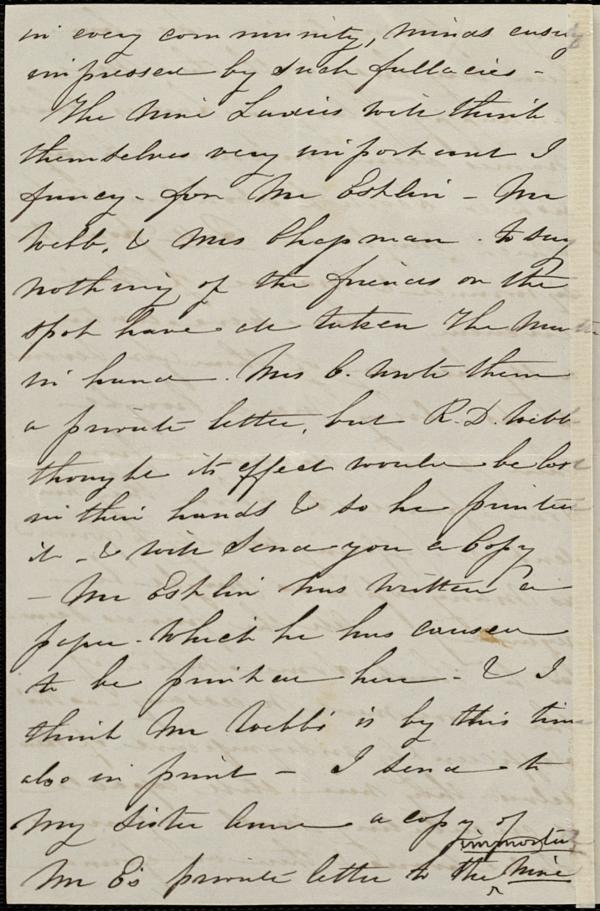 in every community, minds easily
impressed by such fallacies -
The Nine Ladies will think
themselves very important I
fancy - for Mr Estlin - Mr
Webb, & Mrs Chapman - to say
nothing of the friends on the
spot have all taken the matter
in hand. Mrs C. wrote them
a private letter, but R. D. Webb
thought its effect would be lost
in their hands & so he printed
it - & will send you a copy
- Mr Estlin has written a
paper - which he has caused
to be printed here - & I
think Mr Webb's is by this time
also in print - I send to
my sister Anne a copy of
Mr E's private letter to the ^ immortal Nine